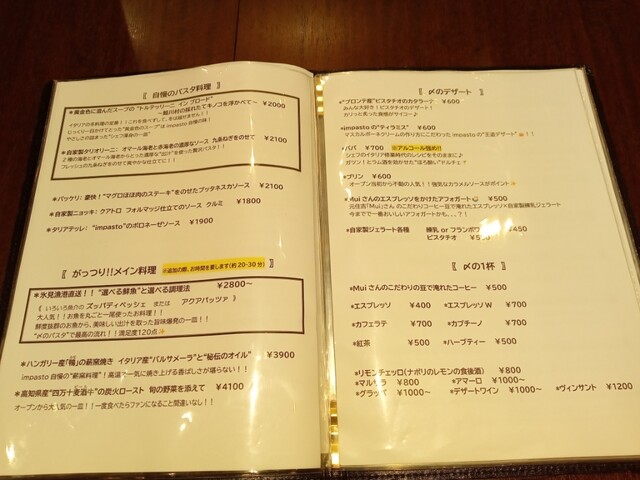 〖 自慢のパスタ料理 〗
*黄金色に澄んだスープの "トルテッリーニ イン ブロード" ¥2000
～鮎川村の採れたてキノコを浮かべて～
イタリアの冬料理の定番!!これを食べずして、冬は越せません!!
じっくり一日かけてとった"黄金色のスープ"は impasto 自慢の味!
やさしさの詰まった"シェフ渾身の一皿"
*自家製タリオリーニ: オマール海老と赤海老の濃厚なソース 九条ねぎをのせて ¥2100
2種の海老とオマール海老からとった濃厚な"出汁"を使った贅沢パスタ!!
フレッシュの九条ねぎをのせて爽やかな仕立てに!!
*パッケリ: 豪快!"マグロほほ肉のステーキ"をのせたプッタネスカソース ¥2100
*自家製ニョッキ: クアトロ フォルマッジ仕立てのソース クルミ ¥1800
*タリアテッレ: "impasto"のボロネーゼソース ¥1900
〖 がっつり!!メイン料理 〗 ※追加の際、お時間を要します(約20-30分)
*氷見漁港直送!! "選べる鮮魚"と選べる調理法 ¥2800～
《 いろいろ魚介の ズッパディペッシェ または アクアパッツァ 》
大人気!!お魚を丸ごと一尾使ったお料理!!
鮮度抜群のお魚から、美味しい出汁を取った旨味爆発の一皿!!
"〆のパスタ"で最高の流れ!!満足度120点✨
*ハンガリー産「鴨」の薪窯焼き イタリア産"バルサメーラ"と"秘伝のオイル" ¥3900
impasto 自慢の"薪窯料理"!高温で一気に焼き上げる香ばしさが堪らない!!
*高知県産"四万十麦酒牛"の炭火ロースト 旬の野菜を添えて ¥4100
オープンから大人気の一皿!!一度食べたらファンになること間違いなし!!
〖 〆のデザート 〗
*"ブロンテ産"ピスタチオのカタラーナ ¥600
みんな大好き!ピスタチオのデザート!
カリっと炙った食感がサイコー♪
*impasto の"ティラミス" ¥600
マスカルポーネクリームの作りおきにこだわった impasto の"王道デザート"!!
*ババ ¥700 ※アルコール強め!!
シェフのイタリア修業時代のレシピをそのままに♪
ガツン!とラム酒を効かせた"ほろ酔い"ドルチェ?
*プリン ¥600
オープン当初から不動の人気!!強気なカラメルソースがポイント✨
*Mui さんのエスプレッソをかけたアフォガート ¥500
元住吉「Mui」さん のこだわりコーヒー豆で淹れたエスプレッソと自家製練乳ジェラート
今までで一番おいしいアフォガートかも、、、?!
*自家製ジェラート各種 練乳 or フランボワーズ ¥450
ピスタチオ ¥500
〖 〆の1杯 〗
*Mui さんのこだわりの豆で淹れたコーヒー ¥500
*エスプレッソ ¥400 *エスプレッソ W ¥700
*カフェラテ ¥700 *カプチーノ ¥700
*紅茶 ¥500 *ハーブティー ¥500
*リモンチェッロ(ナポリのレモンの食後酒) ¥800
*マルサラ ¥800 *アマーロ ¥1000～
*グラッパ ¥1000～ *デザートワイン ¥1000～ *ヴィンサント ¥1200